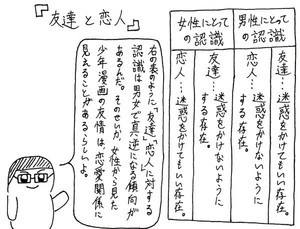 『友達と恋人』
男性にとって
の認識
友達…迷惑をかけないように
する存在。
恋人…迷惑をかけてもいい存在。
女性にとって
の認識
友達…迷惑をかけないように
する存在。
恋人…迷惑をかけてもいい存在。
右の表のように、「友達」「恋人」に対する
認識は男女で真逆になる傾向が
あるんだ。そのせいか、女性から見た
少年漫画の友情は、恋愛関係に
見えることがあるらしいよ。